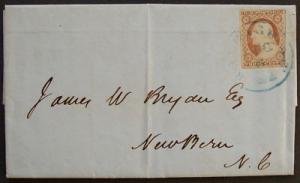 James W Bryan Esq
New Bern
N. C